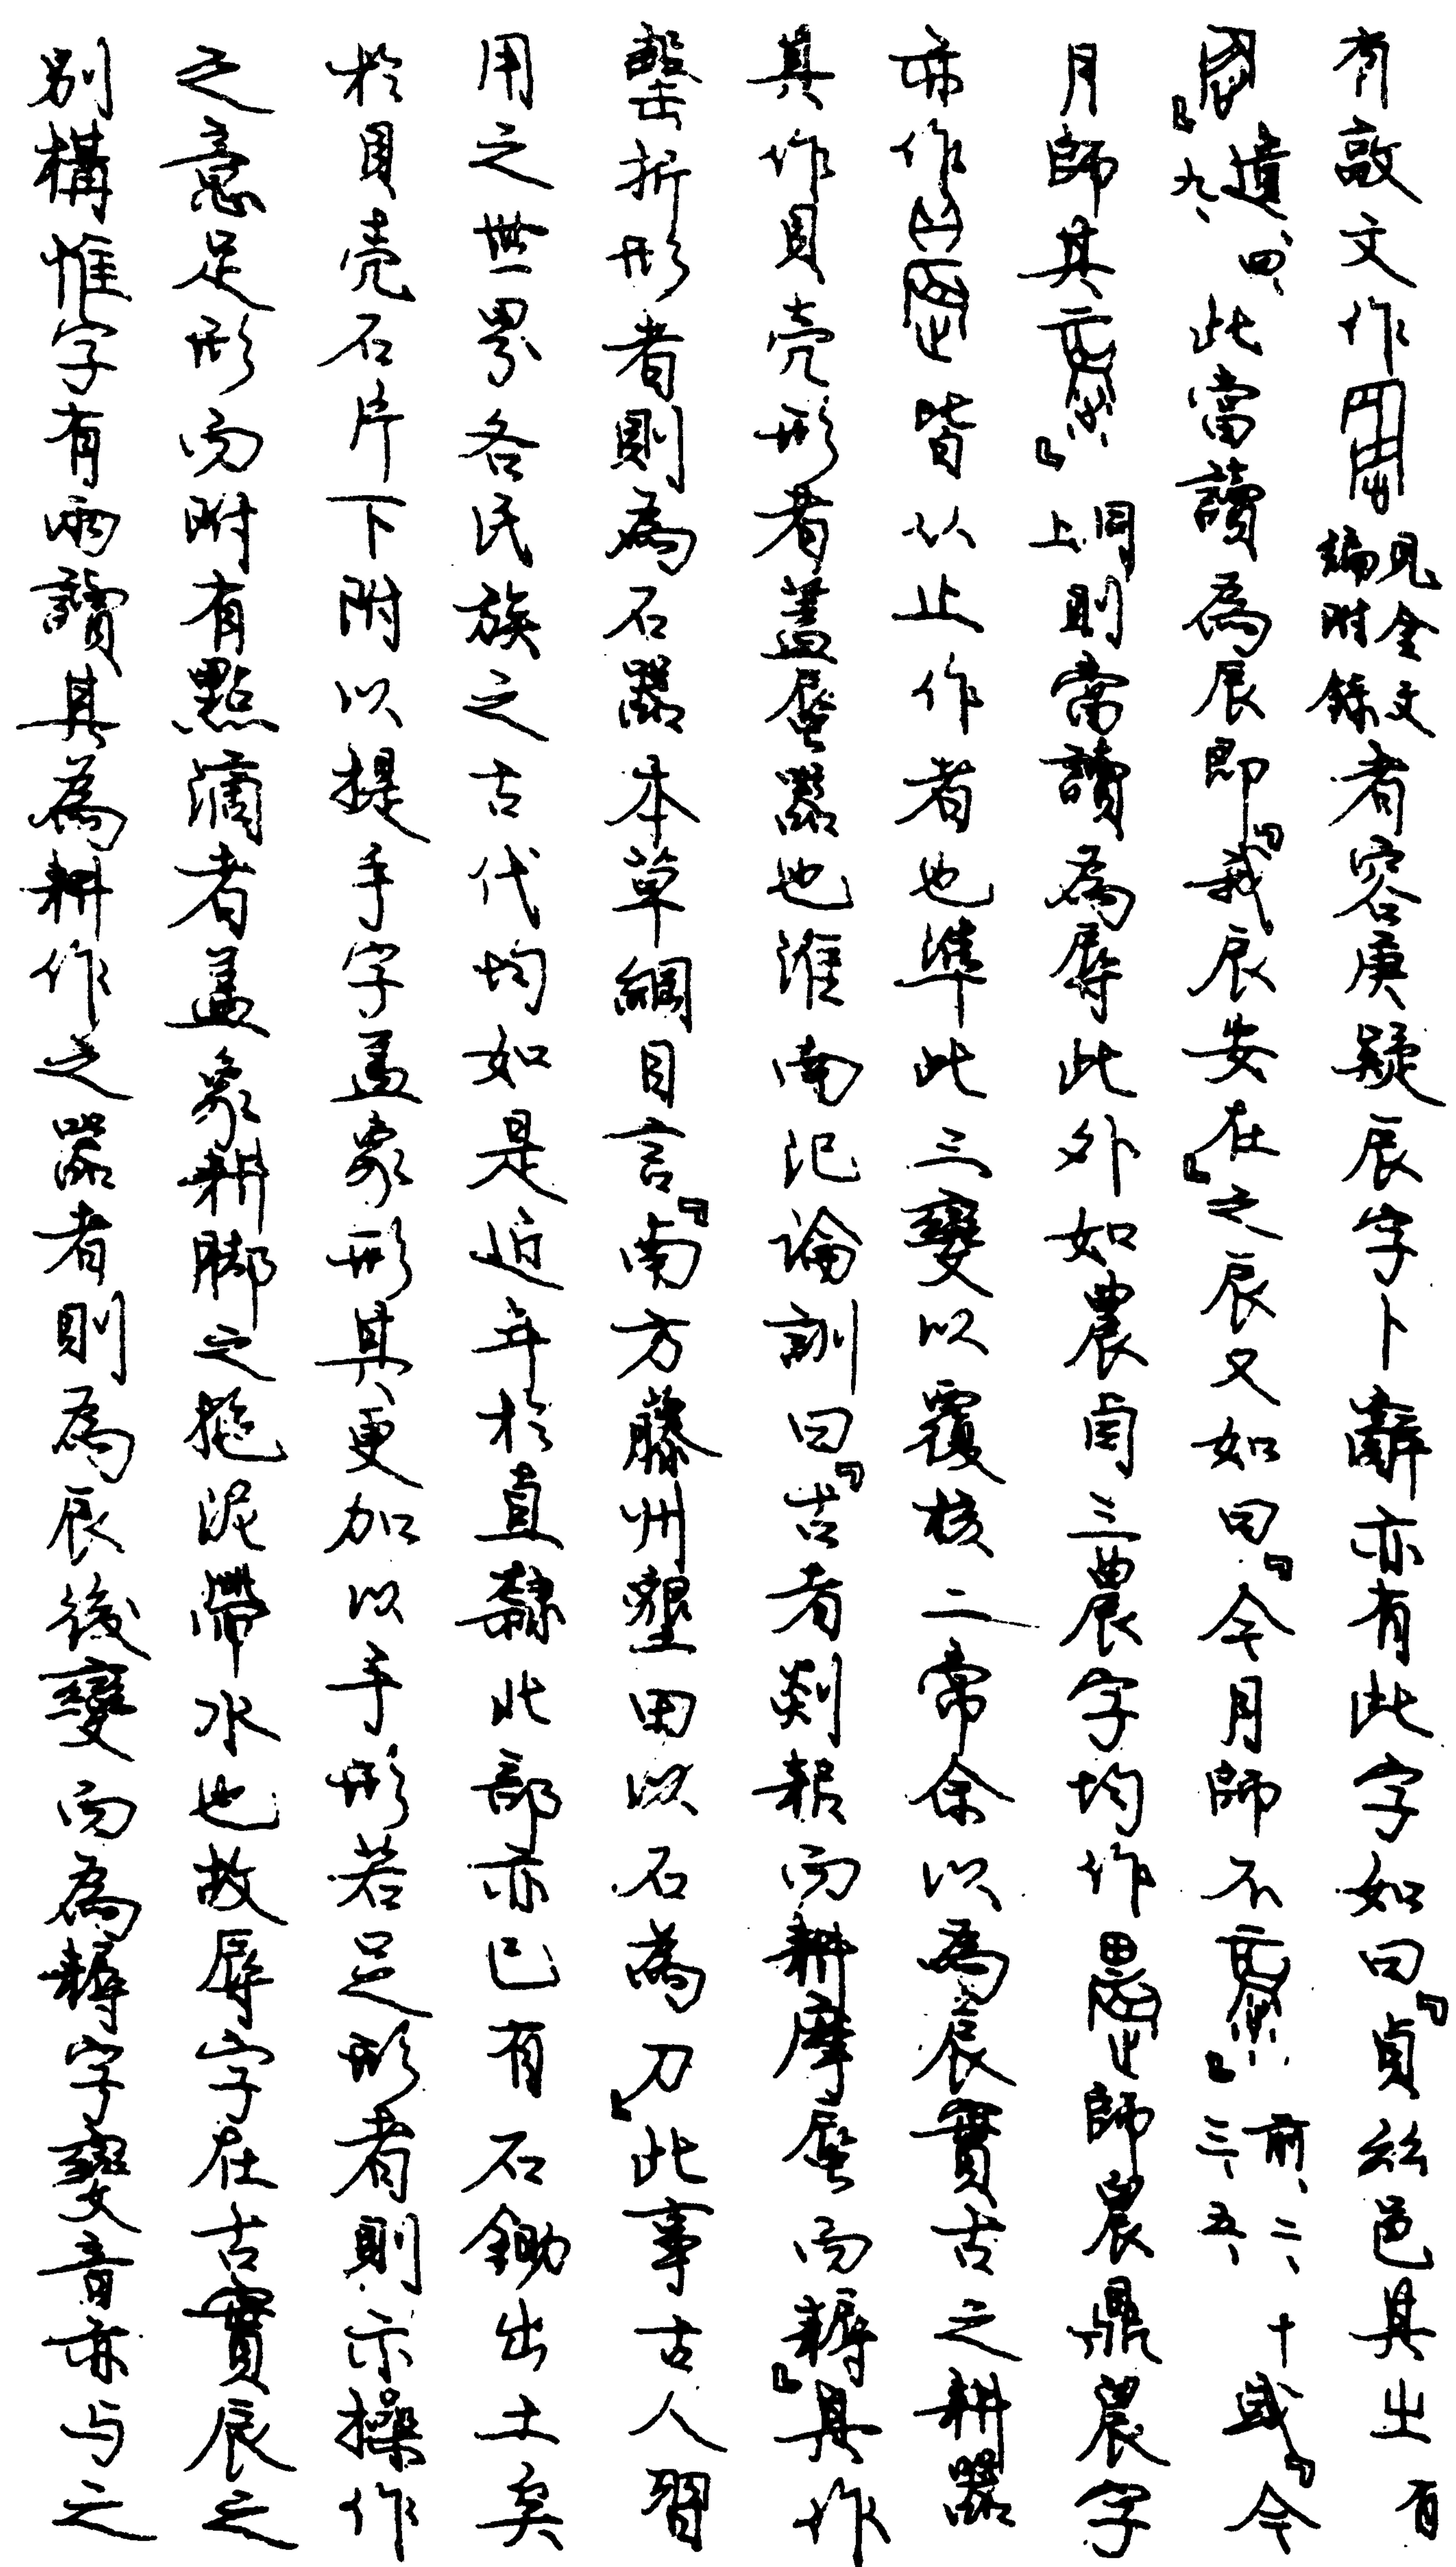 有敲文作見金文編附錄者容庚疑辰字卜辭亦有此字如曰『貞茲邑其出有
』遺、四、九、此當讀為辰即『曰我辰安在』之辰又如曰『今月師不』前、二、十三、五、或『今
月師其』同上則當讀為辱此外如農卣三農字均作師農鼎農字
亦作皆从止作者也準此三變以覆核二常余以為辰實古之耕器
其作貝壳形者蓋蜃器也淮南氾論訓曰『古者剡耜而耕摩蜃而耨』其作
磬折形者則為石器本草綱目言『南方藤州墾田以石為刀』此事古人習
用之世界各民族之古代均如是近年於直隸北部亦已有石鋤出土矣
於貝壳石片下附以提手字蓋象形其更加以手形若足形者則示操作
之意足形而附有點滴者蓋象耕腳之拖泥帶水也故辱字在古實辰之
別構惟字有兩讀其為耕作之器者則為辰後變而為耨字變音亦与之